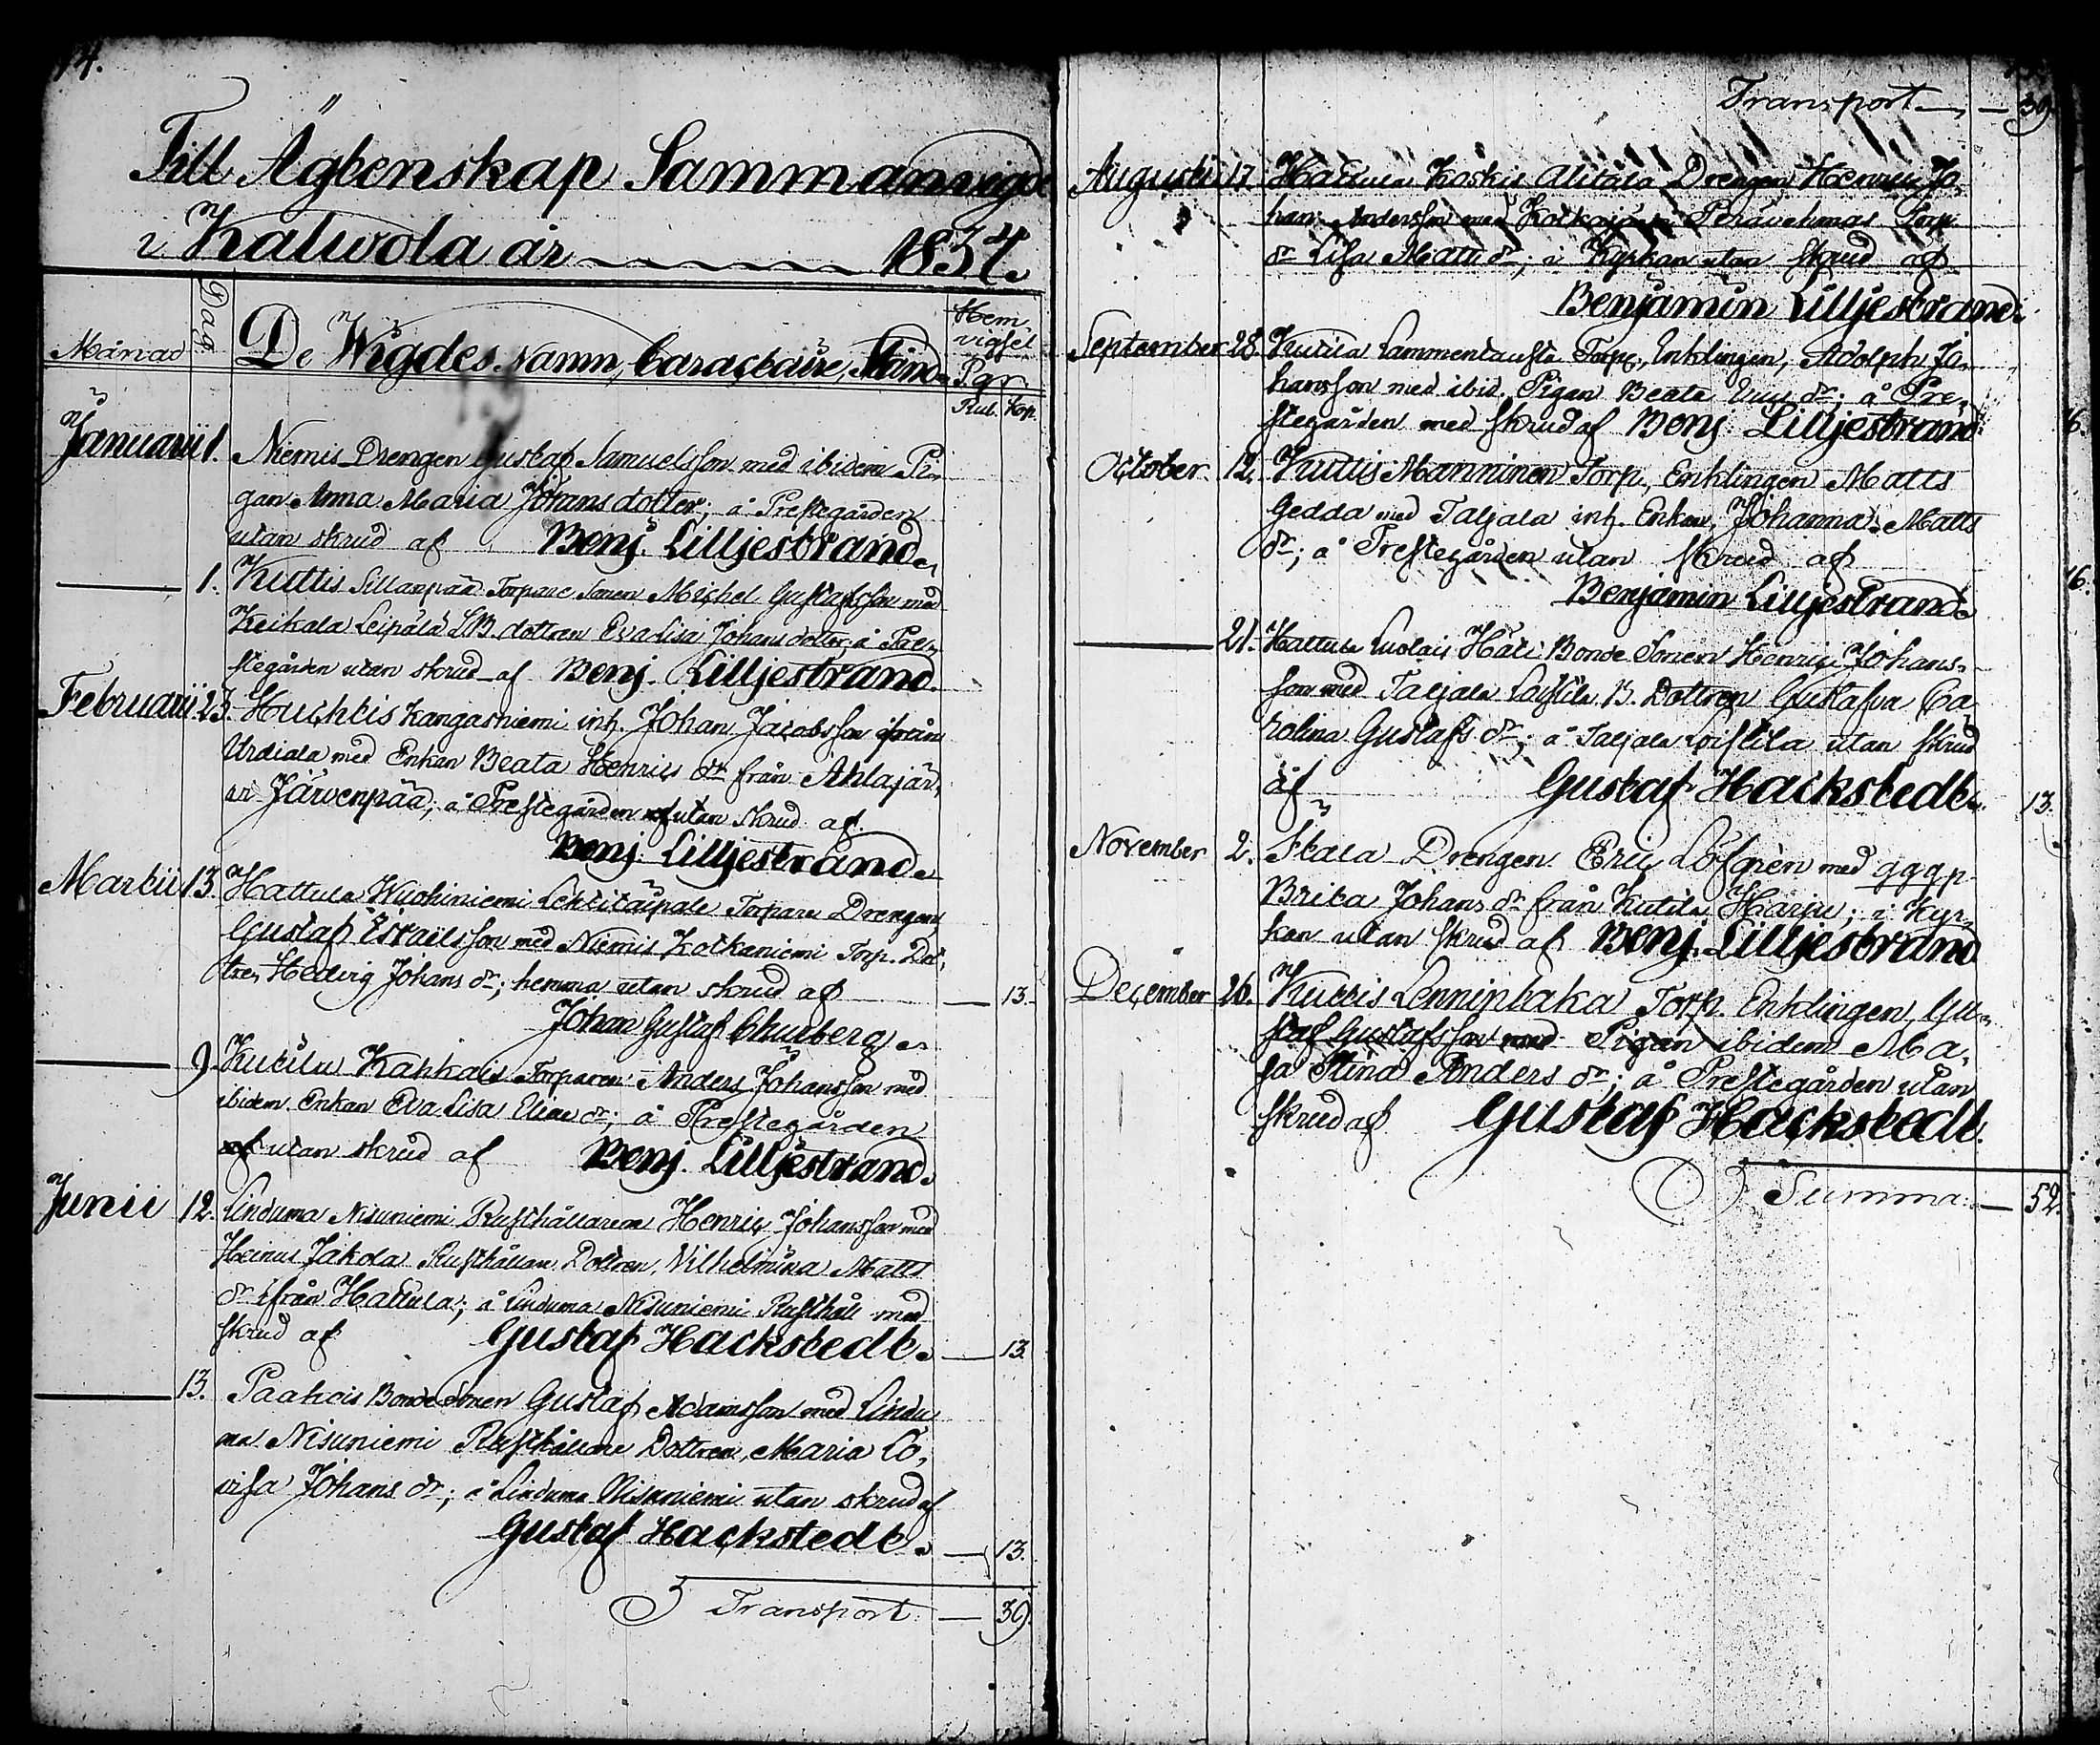 74.
Till Ägtenskap Sammanvigde
i Kalwola år 1834.
Månad Dag. De Wigdes Namn, Caractaire, Stånd. Hem-
vigsel
Pgr.
Rub. Kop.
Januarii 1. Niemis Drengen Gustaf Samuelsson med ibidem Pi-
gan Anna Maria Johansdotter; å Prestegården
utan skrud af Benj. Lilljestrand.
1. Kuttis Sillanpää Torpare Sonen Michel Gustafsson med
Keikala Leipälä LB. dottren Eva Lisa Johansdotter, å Pre-
stegården utan skrud af Benj. Lilljestrand.
Februarii 23. Huchtis Kangasniemi inh. Johan Jacobsson ifrån
Urdiala med Enkan Beata Henrics dr från Ahlajär-
vi Järvenpää, å Prestegården utan skrud af
Benj. Lilljestrand.
Martii 13. Hattula Wuohiniemi Torpare Drengen
Gustaf Esraelsson med Niemis Kotkaniemi Torp. Dot-
tren Hedvig Johans dr; hemma utan skrud af — 13.
Johan Gustaf Churberg.
9. Kutila Kahkais Torparen Anders Johansson med
ibidem Enkan Eva Lisa Elias dr; å Prestegården
utan skrud af Benj. Lilljestrand.
Junii 12. Linduma Nisuniemi Rusthållaren Henric Johansson med
Heinus Jakola Rusthållare Dottren, Vilhelmina Matts
dr ifrån Hattula; å Linduma Nisuniemi Rusthåll med
skrud af Gustaf Hackstedt. — 13.
13. Paahois Bonde Sonen Gustaf Adamsson med Lindu-
ma Nisuniemi Rusthållare Dottren, Maria Lo-
visa Johans dr; å Linduma Nisuniemi utan skrud af
Gustaf Hackstedt. — 13.
Transport. — 39.
Transport — 39.
Augusti 17. Hattula Koskis Alitalo Drengen Henric Jo-
han Andersson med Torp.
dr Lisa Matts dr; i Kyrkan utan skrud af
Benjamin Lilljestrand.
September 28. Kutila Lammentausta Torp., Enklingen, Adolph Jo-
hansson med ibid. Pigan Beata dr; å Pre-
stegården med skrud af Benj. Lilljestrand. 16.
October. 12. Kuttis Manninen Torp., Enklingen Matts
Gedda med Taljala inh. Enkan, Johanna Matts
dr; å Prestegården utan skrud af
Benjamin Lilljestrand. 16.
21. Hattula Luolais Häti Bonde Sonen Henric Johans-
son med Taljala B. Dottren Gustafva Ca-
rolina Gustafs dr; å Taljala utan skrud
af Gustaf Hackstedt. 13.
November 2. Drengen Eric Löfgrèn med gggp.
Brita Johans dr från Kutila Harju; i Kyr-
kan utan skrud af Benj. Lilljestrand
December 26. Kuttis Torp. Enklingen, Gu-
staf Gustafsson med Pigan ibidem Ma-
ja Stina Anders dr; å Prestegården utan
skrud af Gustaf Hackstedt.
Summa. — 52.